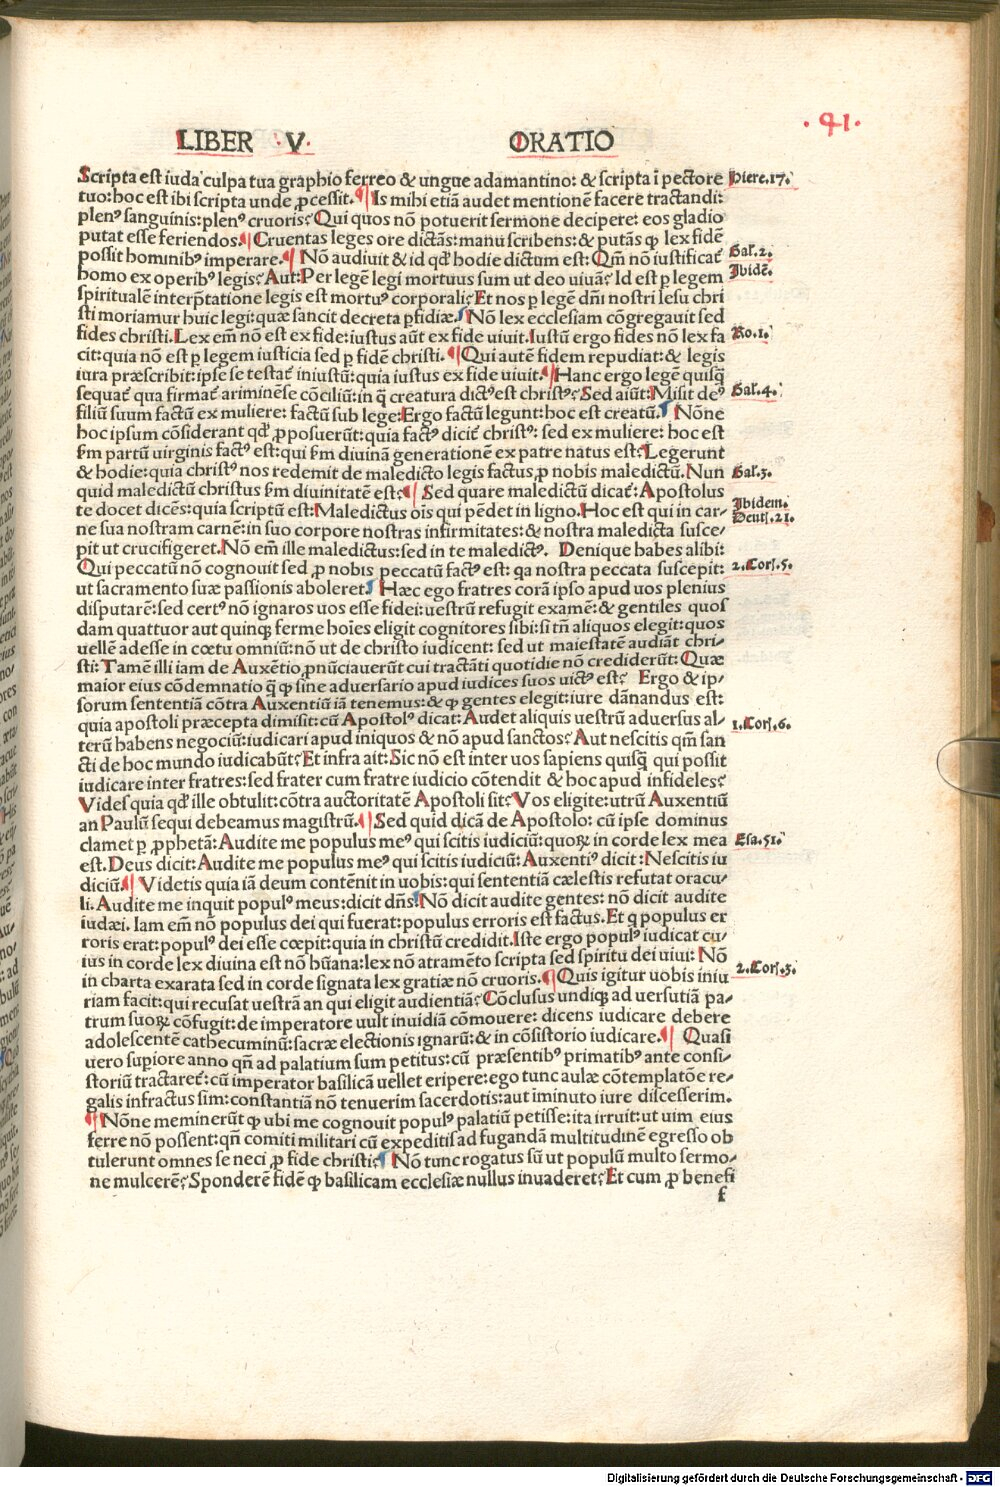 · 41 ·
LIBER · V ·
ORATIO
Scripta est iuda culpa tua graphio ferreo & ungue adamantino: & scripta ī pectore
Hiere.17.
tuo: hoc est ibi scripta unde ꝓcessit. ¶ Is mihi etiā audet mentionē facere tractandi:
plenꝰ sanguinis: plenꝰ cruoris? Qui quos nō potuerit sermone decipere: eos gladio
putat esse feriendos. ¶ Cruentas leges ore dictās: manu scribens: & putās ꝙ lex fidē
possit hominibꝰ imperare. ¶ Nō audiuit & id qđ hodie dictum est: Qm̄ nō iustificat̄
Gal.2.
homo ex operibꝰ legis? Aut: Per legē legi mortuus sum ut deo uiuā? Id est ꝑ legem
Ibidē.
spiritualē interp̄tatione legis est mortuꝰ corporali? Et nos ꝑ legē dn̄i nostri Iesu chri
sti moriamur huic legi: quæ sancit decreta ꝑfidiæ. ¶ Nō lex ecclesiam cōgregauit sed
fides christi. Lex em̄ nō est ex fide: iustus aūt ex fide uiuit. Iustū ergo fides nō lex fa
Ro.1.
cit: quia nō est ꝑ legem iusticia sed ꝑ fidē christi. ¶ Qui autē fidem repudiat: & legis
iura præscribit: ipse se testat̄ iniustū: quia iustus ex fide uiuit. ¶ Hanc ergo legē quisꝗ̄
sequat̄ qua firmat̄ ariminēse cōciliū: in q̄ creatura dictꝰ est christꝰ? Sed aiūt: Misit deꝰ
Gal.4.
filiū suum factū ex muliere: factū sub lege: Ergo factū legunt: hoc est creatū. ¶ Nōne
hoc ipsum cōsiderant qđ ꝓposuerūt: quia factꝰ dicit̄ christꝰ: sed ex muliere: hoc est
ẜm partū uirginis factꝰ est: qui ẜm diuinā generationē ex patre natus est? Legerunt
& hodie: quia christꝰ nos redemit de maledicto legis factus ꝓ nobis maledictū. Nun
Gal.3.
quid maledictū christus ẜm diuinitatē est? ¶ Sed quare maledictū dicat̄: Apostolus
te docet dicēs: quia scriptū est: Maledictus oīs qui pēdet in ligno. Hoc est qui in car-
Ibidem.
Deut.21.
ne sua nostram carnē: in suo corpore nostras infirmitates: & nostra maledicta susce-
pit ut crucifigeret. Nō em̄ ille maledictus: sed in te maledictꝰ. Denique habes alibi:
Qui peccatū nō cognouit sed ꝓ nobis peccatū factꝰ est: qa nostra peccata suscepit:
2.Cor.5.
ut sacramento suæ passionis aboleret. ¶ Hæc ego fratres corā ipso apud uos plenius
disputarē: sed certꝰ nō ignaros uos esse fidei: uestrū refugit examē: & gentiles quos
dam quattuor aut quinqꝫ ferme hoīes eligit cognitores sibi: si tn̄ aliquos elegit: quos
uellē adesse in cœtu omniū: nō ut de christo iudicent: sed ut maiestatē audiāt chri-
sti: Tamē illi iam de Auxētio ꝓnūciauerūt cui tractāti quotidie nō crediderūt: Quæ
maior eius cōdemnatio q̄ ꝙ sine aduersario apud iudices suos uictꝰ est? Ergo & ip-
sorum sententiā cōtra Auxentiū iā tenemus: & ꝙ gentes elegit: iure dānandus est:
quia apostoli præcepta dimisit: cū Apostolꝰ dicat: Audet aliquis uestrū aduersus al-
1.Cor.6.
terū habens negociū: iudicari apud iniquos & nō apud sanctos? Aut nescitis qm̄ san
cti de hoc mundo iudicabūt? Et infra ait: Sic nō est inter uos sapiens quisꝗ̄ qui possit
iudicare inter fratres: sed frater cum fratre iudicio cōtendit & hoc apud infideles?
Vides quia qđ ille obtulit: cōtra auctoritatē Apostoli sit? Vos eligite: utrū Auxentiū
an Paulū sequi debeamus magistrū. ¶ Sed quid dicā de Apostolo: cū ipse dominus
clamet ꝑ ꝓphetā: Audite me populus meꝰ qui scitis iudiciū: quoꝝ in corde lex mea
Esa.51.
est. Deus dicit: Audite me populus meꝰ qui scitis iudiciū: Auxentiꝰ dicit: Nescitis iu
diciū. ¶ Videtis quia iā deum contēnit in uobis: qui sententiā cælestis refutat oracu-
li. Audite me inquit populꝰ meus: dicit dn̄s. ¶ Nō dicit audite gentes: nō dicit audite
iudæi. Iam em̄ nō populus dei qui fuerat: populus erroris est factus. Et q populus er
roris erat: populꝰ dei esse cœpit: quia in christū credidit. Iste ergo populꝰ iudicat cu-
ius in corde lex diuina est nō hūana: lex nō atramēto scripta sed spiritu dei uiui: Nō
2.Cor.3.
in charta exarata sed in corde signata lex gratiæ nō cruoris. ¶ Quis igitur uobis iniu
riam facit: qui recusat uestrā an qui eligit audientiā? Cōclusus undiqꝫ ad uersutiā pa-
trum suoꝝ cōfugit: de imperatore uult inuidiā cōmouere: dicens iudicare debere
adolescentē cathecuminū: sacræ electionis ignarū: & in cōsistorio iudicare. ¶ Quasi
uero superiore anno qn̄ ad palatium sum petitus: cū præsentibꝰ primatibꝰ ante consi-
storiū tractaret̄: cū imperator basilicā uellet eripere: ego tunc aulæ cōtemplatōe re-
galis infractus sim: constantiā nō tenuerim sacerdotis: aut iminuto iure discesserim.
¶ Nōne meminerūt ꝙ ubi me cognouit populꝰ palatiū petisse: ita irruit: ut uim eius
ferre nō possent: qn̄ comiti militari cū expeditis ad fugandā multitudinē egresso ob
tulerunt omnes se neci ꝓ fide christi? ¶ Nō tunc rogatus sū ut populū multo sermo-
ne mulcerē? Sponderē fidē ꝙ basilicam ecclesiæ nullus inuaderet? Et cum ꝓ benefi
f
Digitalisierung gefördert durch die Deutsche Forschungsgemeinschaft - DFG